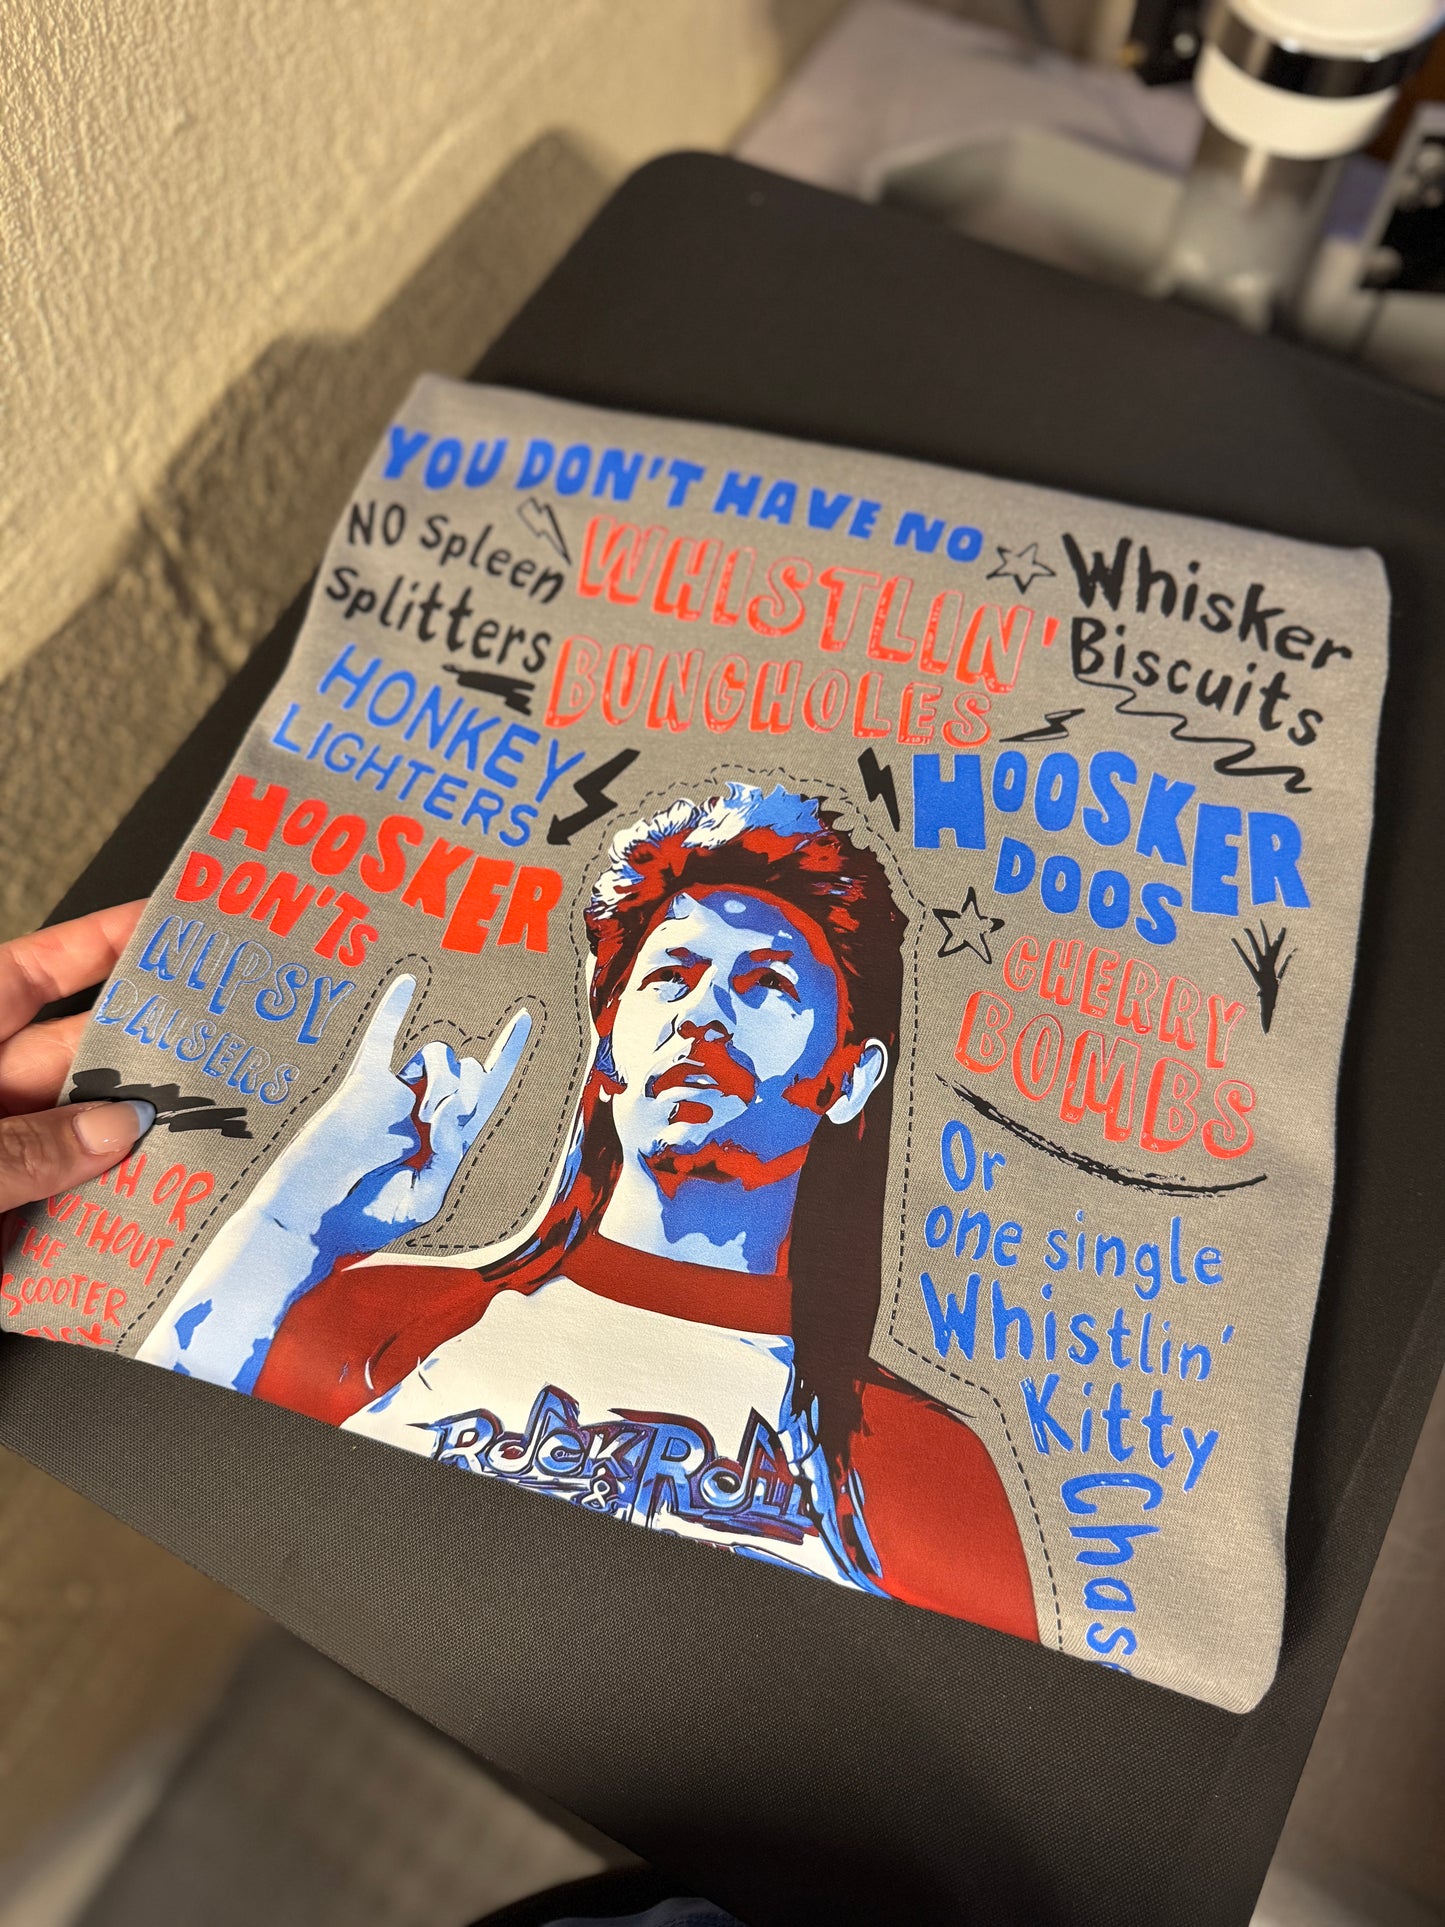 YOU DON'T HAVE NO
NO Spleen
Splitters
WHISTLIN'
BUNGHOLES
Whisker
Biscuits
HONKEY
LIGHTERS
HOOSKER
DOOS
HOOSKER
DON'Ts
NIPSY
DAISERS
CHERRY
BOMBS
OR
WITHOUT
THE
SCOOTER
Or
one single
Whistlin'
Kitty
Chas
ROCK
&
ROLL